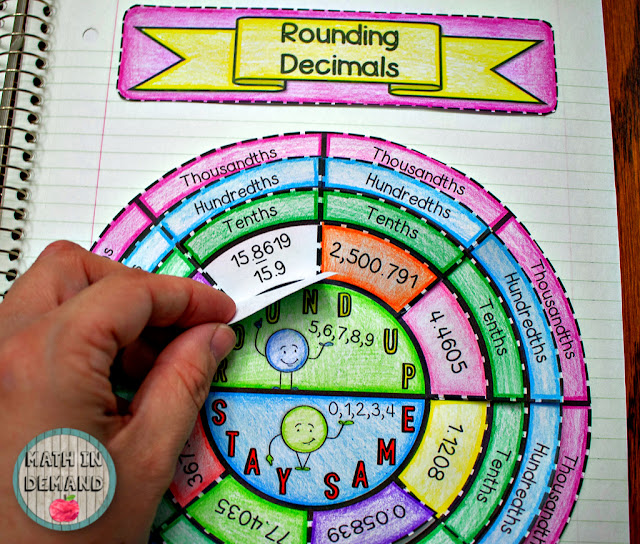 Rounding
Decimals
Thousandths
Thousandths
Hundredths
Hundredths
Tenths
Tenths
15.8619
15.9
2,500.791
Thousandths
Hundredths
Tenths
4.4605
ROUND UP
5,6,7,8,9
0,1,2,3,4
STAY SAME
1.1208
Tenths
Hundredths
Thousandths
367.
77.4035
0.05839
MATH IN
DEMAND